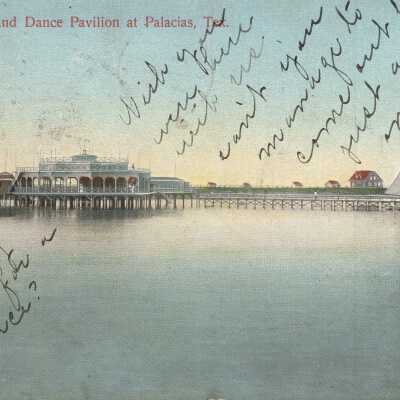 and Dance Pavilion at Palacias, Tex.
Wish you
were here
with us.
can't you
manage to
come out
just a
for a